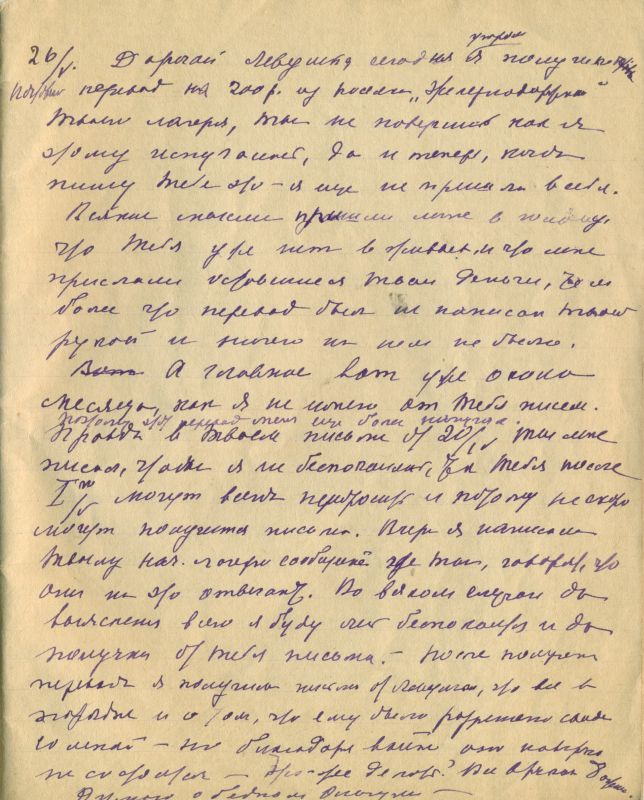 утром
26/V. Дорогой Левушка сегодня я получила
почтовый перевод на 200 р. из поселка „Железнодорожн"
твоего лагеря, ты не поверишь как я
этому испугалась, да и теперь, когда
пишу тебе это – я еще не пришла в себя.
Всякие мысли пришли мне в голову,
что тебя уже нет в живых, и что мне
прислали оставшиеся твои деньги, тем
более что перевод был не написан твоей
рукой и ничего на нем не было.
А главное вот уже около
месяца, как я не имею от тебя писем.
Поэтому этот перевод меня еще более напугал.
Правда в твоем письме от 20/IV ты мне
писал, чтобы я не беспокоилась, тебя после
I го/V могут всех перебросить и потому не скоро
могут получится письма. Вчера я написала
твоему нач. лагеря сообщить где ты, говорят, что
они на это отвечают. Во всяком случае до
выяснения всего я буду беспокоиться и до
получки от тебя письма. – После получения
перевода я получила письмо от, что все в
порядке и о том, что ему было разрешено свидание
со мной – но благодаря войне оно наверно
не состоится – Что же делать? Вы
Думаю о бедном